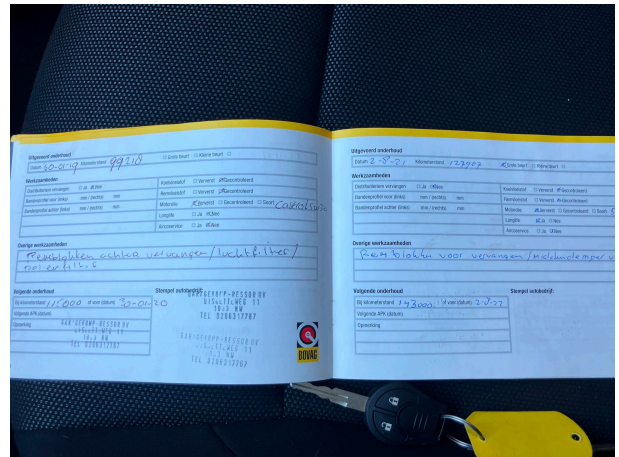 Uitgevoerd onderhoud
Datum 30-01-19 Kilometerstand 99218 □ Grote beurt □ Kleine beurt □
Werkzaamheden
Distributieriem vervangen □ Ja ☒ Nee
Bandenprofiel voor (links) mm / (rechts) mm
Bandenprofiel achter (links) mm / (rechts) mm
Koelvloeistof □ Ververst ☒ Gecontroleerd
Remvloeistof □ Ververst ☒ Gecontroleerd
Motorolie ☒ Ververst □ Gecontroleerd □ Soort Castrol 5w30
Longlife □ Ja ☒ Nee
Aircoservice □ Ja ☒ Nee
Overige werkzaamheden
Remblokken achter vervangen / luchtfilter /
oliefilter
Volgende onderhoud
Bij kilometerstand 115000 of voor (datum) 30-01-20
Volgende APK (datum)
Opmerking
Stempel autobedrijf:
TEL 0206317767
BOVAG
Uitgevoerd onderhoud
Datum 2-8-21 Kilometerstand 127907 ☒ Grote beurt □ Kleine beurt □
Werkzaamheden
Distributieriem vervangen □ Ja ☒ Nee
Bandenprofiel voor (links) mm / (rechts) mm
Bandenprofiel achter (links) mm / (rechts) mm
Koelvloeistof □ Ververst ☒ Gecontroleerd
Remvloeistof □ Ververst ☒ Gecontroleerd
Motorolie ☒ Ververst □ Gecontroleerd □ Soort
Longlife ☒ Ja □ Nee
Aircoservice □ Ja ☒ Nee
Overige werkzaamheden
Remblokken voor vervangen /
Volgende onderhoud
Bij kilometerstand 143000 of voor (datum) 2-8-22
Volgende APK (datum)
Opmerking
Stempel autobedrijf: